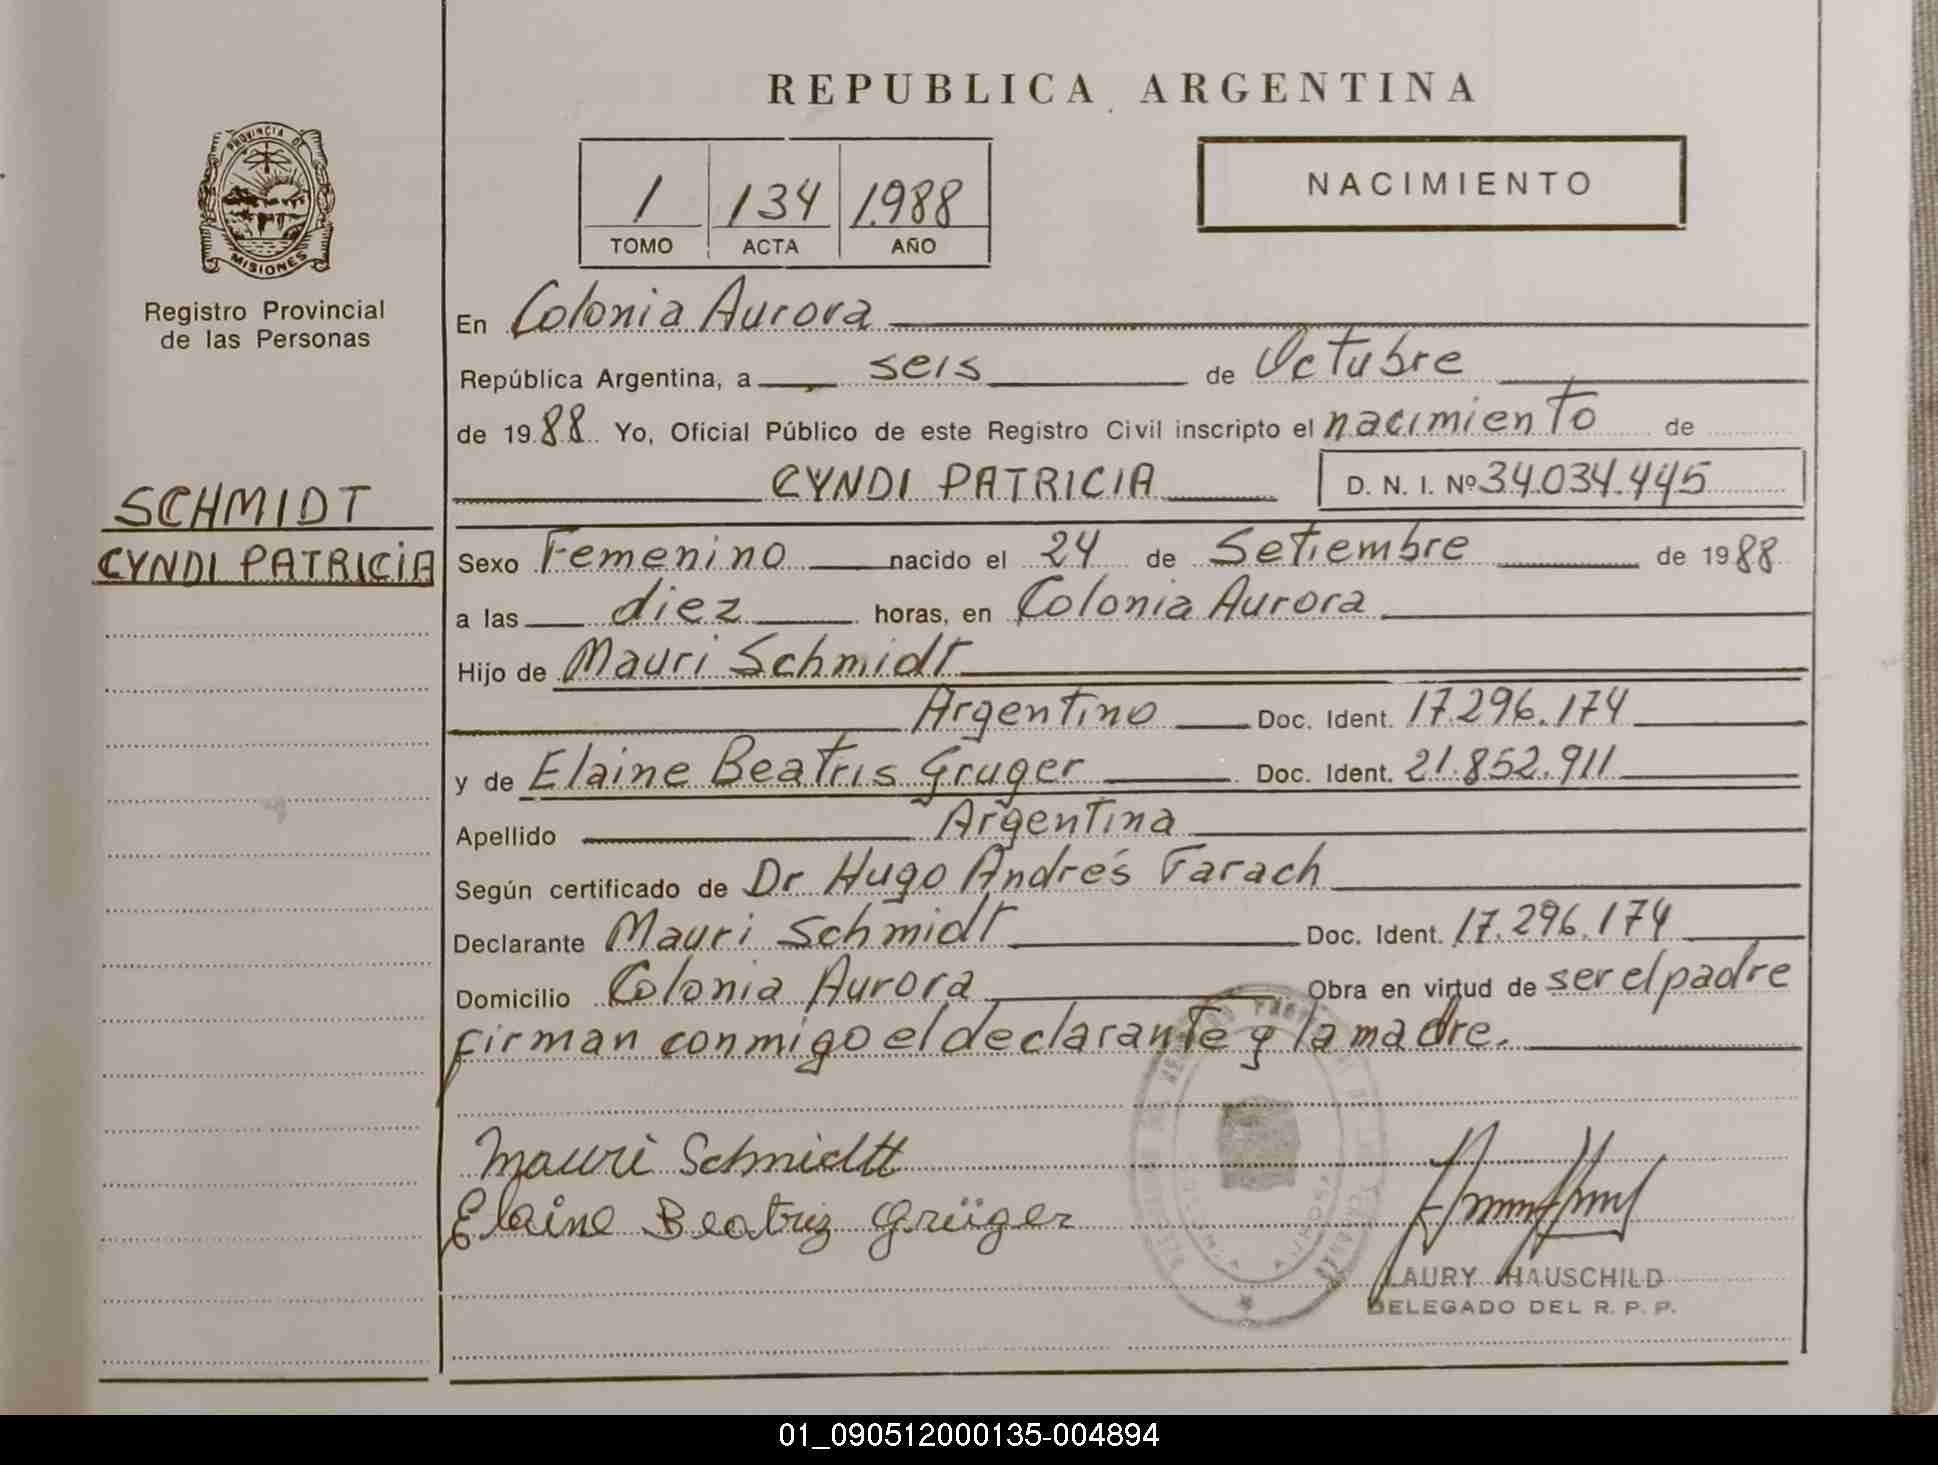 REPUBLICA ARGENTINA
PROVINCIA DE
MISIONES
Registro Provincial
de las Personas
1 134 1.988
TOMO ACTA AÑO
NACIMIENTO
SCHMIDT
CYNDI PATRICIA
En Colonia Aurora
República Argentina, a seis de Octubre
de 1988 Yo, Oficial Público de este Registro Civil inscripto el nacimiento de
CYNDI PATRICIA D. N. I. Nº 34.034.445
Sexo Femenino nacido el 24 de Setiembre de 1988
a las diez horas, en Colonia Aurora
Hijo de Mauri Schmidt
Argentino Doc. Ident. 17.296.174
y de Elaine Beatris Gruger Doc. Ident. 21.852.911
Apellido Argentina
Según certificado de Dr Hugo Andrés Farach
Declarante Mauri Schmidt Doc. Ident. 17.296.174
Domicilio Colonia Aurora Obra en virtud de ser el padre
firman conmigo el declarante y la madre.
Mauri Schmidtt
Elaine Beatriz Grüger
LAURY HAUSCHILD
DELEGADO DEL R. P. P.
01_090512000135-004894